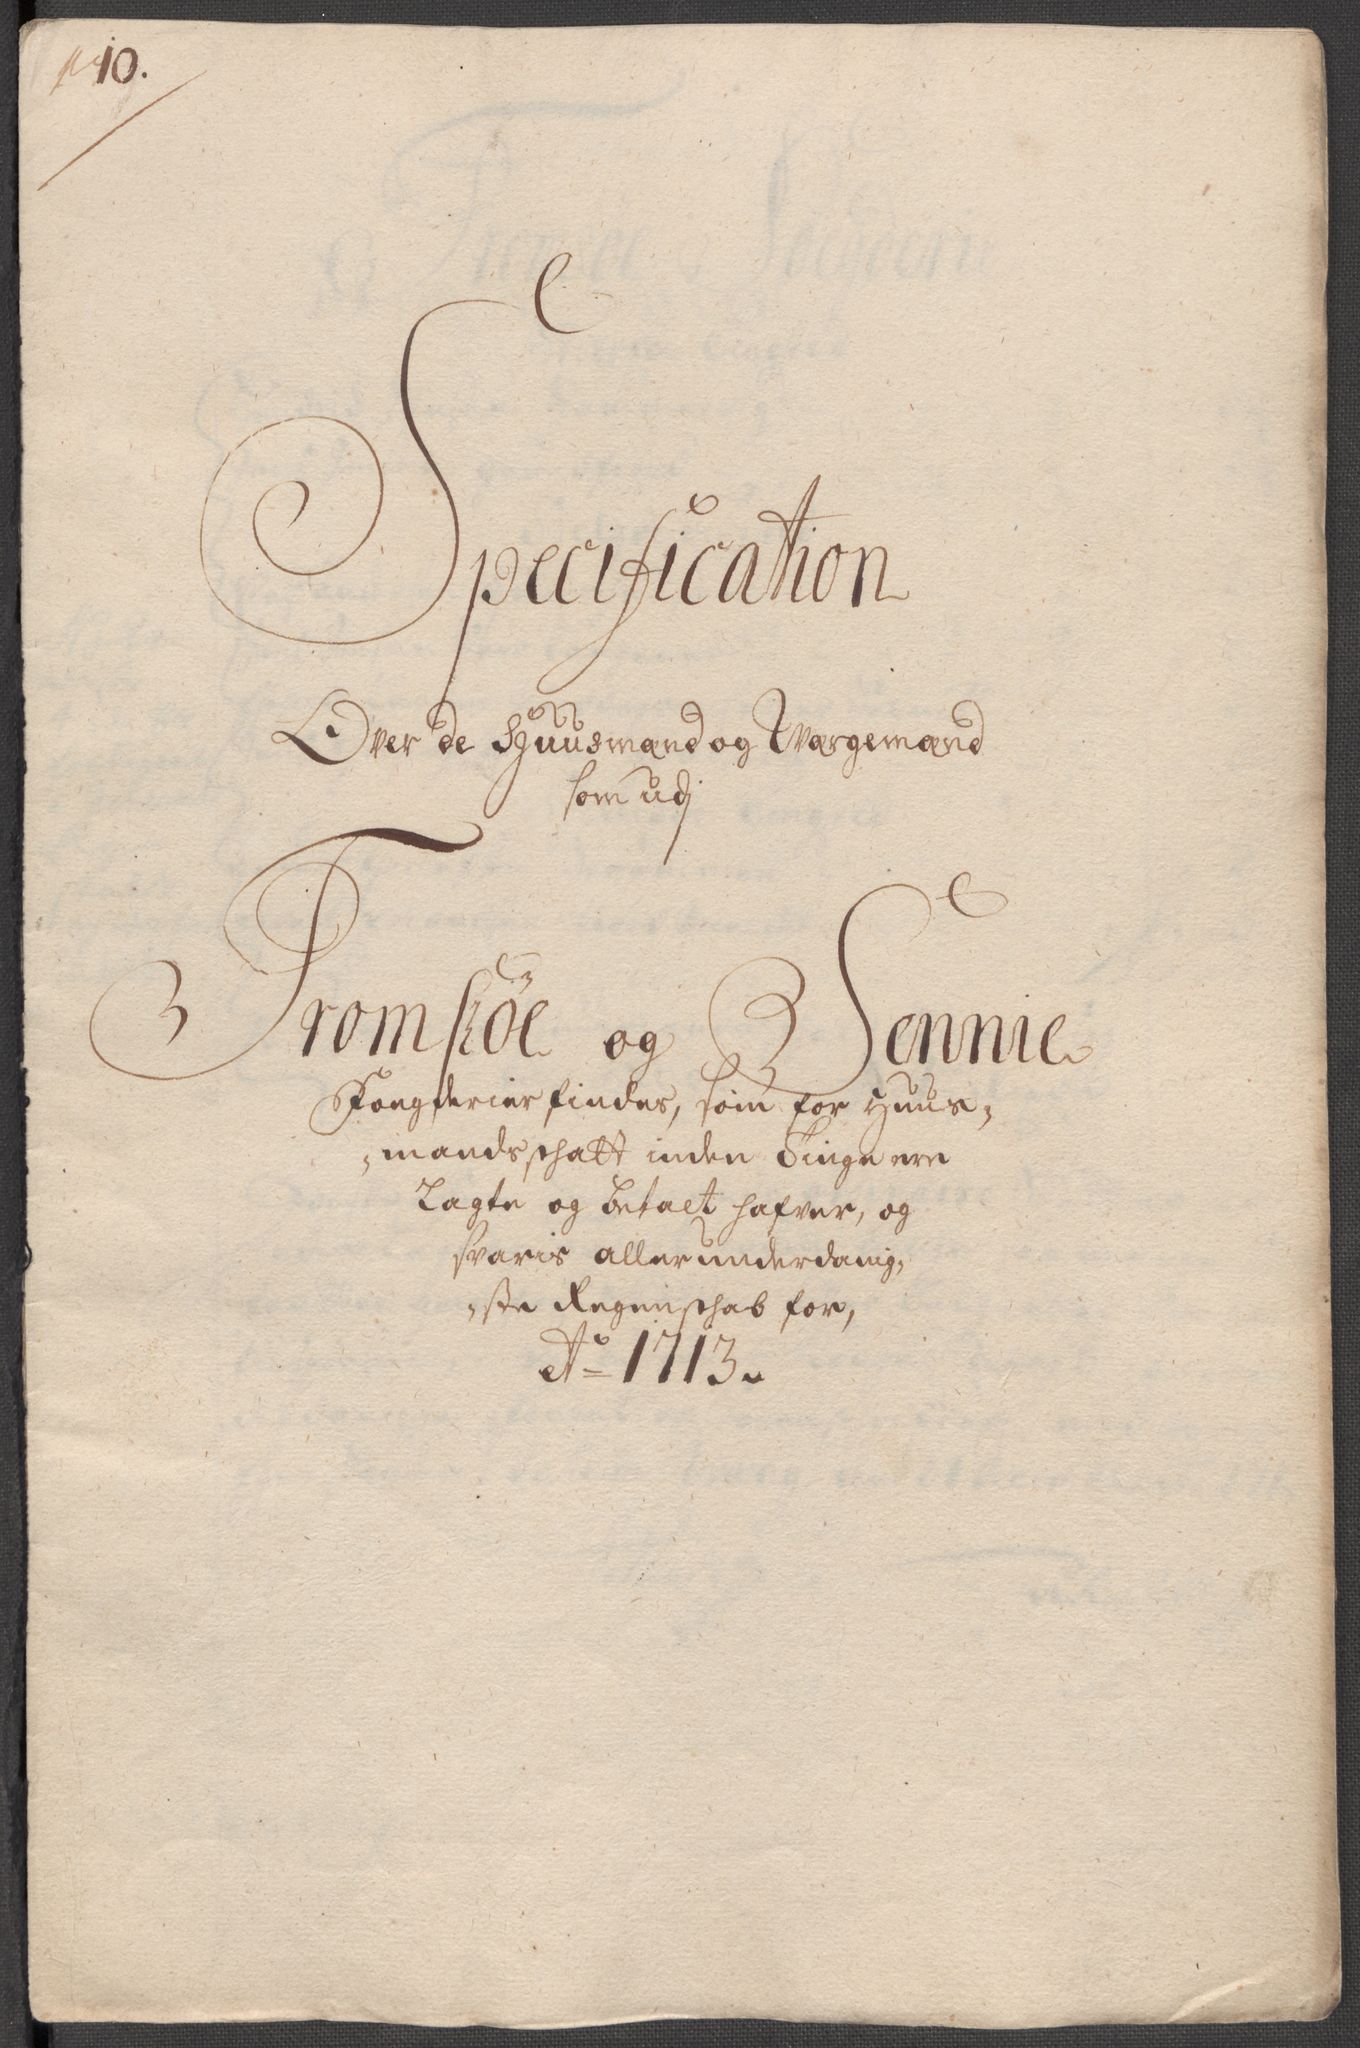 10.
Specification
Over de Huusmænd og Wargemænd
som udj
Tromsøe og Sennie
Fougderier findes, som for Huus,
,mandsschatt inden Tinge ere
Lagte og betalt hafver, og
svaris allerunderdanig,
,ste Regenschab for,
Ao 1713.